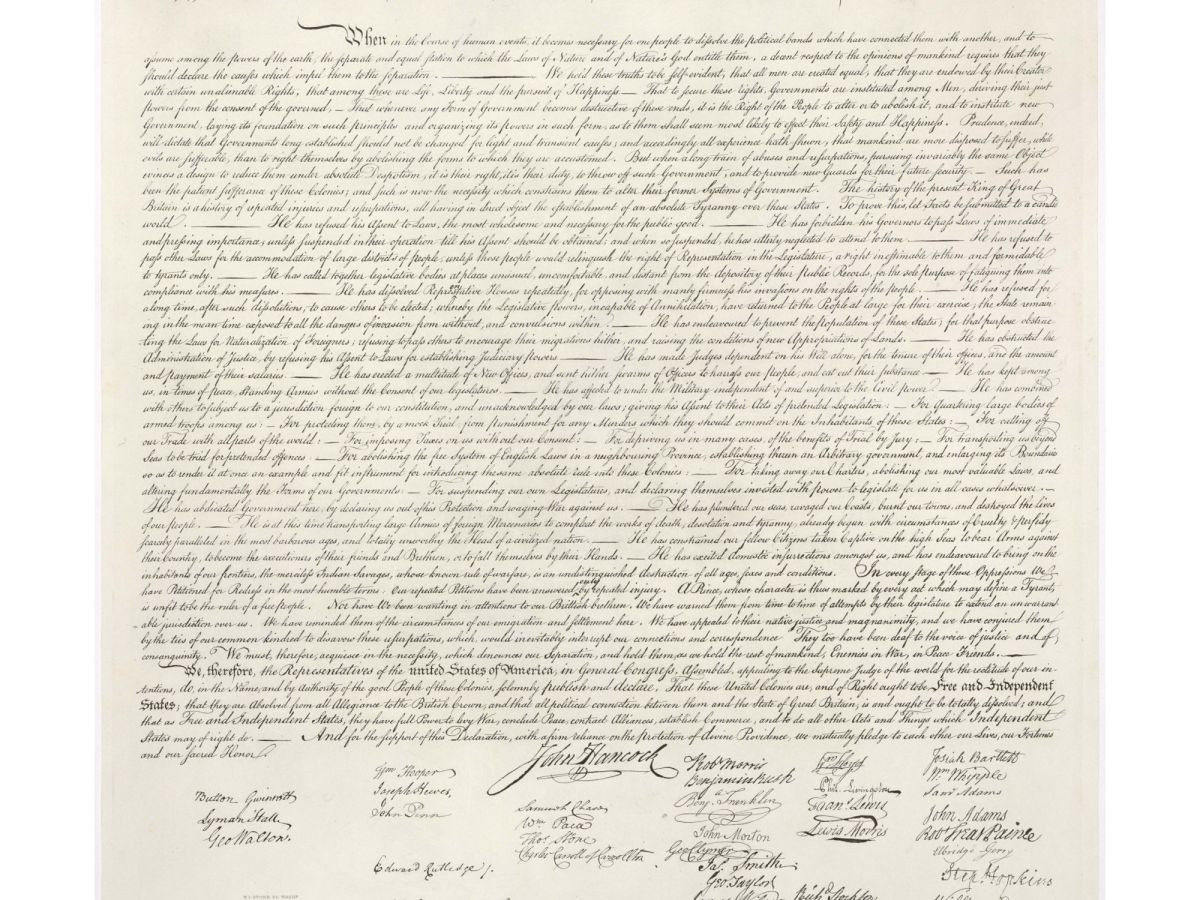 When in the Course of human events, it becomes necessary for one people to dissolve the political bands which have connected them with another, and to
assume among the powers of the earth, the separate and equal station to which the Laws of Nature and of Nature's God entitle them, a decent respect to the opinions of mankind requires that they
should declare the causes which impel them to the separation. ——— We hold these truths to be self-evident, that all men are created equal, that they are endowed by their Creator
with certain unalienable Rights, that among these are Life, Liberty and the pursuit of Happiness — That to secure these rights, Governments are instituted among Men, deriving their just
powers from the consent of the governed, — That whenever any Form of Government becomes destructive of these ends, it is the Right of the People to alter or to abolish it, and to institute new
Government, laying its foundation on such principles and organizing its powers in such form, as to them shall seem most likely to effect their Safety and Happiness. Prudence, indeed,
will dictate that Governments long established should not be changed for light and transient causes; and accordingly all experience hath shewn, that mankind are more disposed to suffer, while
evils are sufferable, than to right themselves by abolishing the forms to which they are accustomed. But when a long train of abuses and usurpations, pursuing invariably the same Object
evinces a design to reduce them under absolute Despotism, it is their right, it is their duty, to throw off such Government, and to provide new Guards for their future security. — Such has
been the patient sufferance of these Colonies; and such is now the necessity which constrains them to alter their former Systems of Government. The history of the present King of Great
Britain is a history of repeated injuries and usurpations, all having in direct object the establishment of an absolute Tyranny over these States. To prove this, let Facts be submitted to a candid
world. —— He has refused his Assent to Laws, the most wholesome and necessary for the public good. —— He has forbidden his Governors to pass Laws of immediate
and pressing importance, unless suspended in their operation till his Assent should be obtained; and when so suspended, he has utterly neglected to attend to them. —— He has refused to
pass other Laws for the accommodation of large districts of people, unless those people would relinquish the right of Representation in the Legislature, a right inestimable to them and formidable
to tyrants only. —— He has called together legislative bodies at places unusual, uncomfortable, and distant from the depository of their Public Records, for the sole purpose of fatiguing them into
compliance with his measures. —— He has dissolved Representative Houses repeatedly, for opposing with manly firmness his invasions on the rights of the people. —— He has refused for
a long time, after such dissolutions, to cause others to be elected; whereby the Legislative powers, incapable of Annihilation, have returned to the People at large for their exercise; the State remain
ing in the mean time exposed to all the dangers of invasion from without, and convulsions within. —— He has endeavoured to prevent the population of these States; for that purpose obstruc
ting the Laws for Naturalization of Foreigners; refusing to pass others to encourage their migrations hither, and raising the conditions of new Appropriations of Lands. —— He has obstructed the
Administration of Justice, by refusing his Assent to Laws for establishing Judiciary powers —— He has made Judges dependent on his Will alone, for the tenure of their offices, and the amount
and payment of their salaries —— He has erected a multitude of New Offices, and sent hither swarms of Officers to harrass our people, and eat out their substance — He has kept among
us, in times of peace, Standing Armies without the Consent of our legislatures. —— He has affected to render the Military independent of and superior to the Civil power —— He has combined
with others to subject us to a jurisdiction foreign to our constitution, and unacknowledged by our laws; giving his Assent to their Acts of pretended Legislation: — For Quartering large bodies of
armed troops among us: — For protecting them, by a mock Trial, from punishment for any Murders which they should commit on the Inhabitants of these States: — For cutting off
our Trade with all parts of the world: — For imposing Taxes on us without our Consent: — For depriving us in many cases, of the benefits of Trial by Jury: — For transporting us beyond
Seas to be tried for pretended offences — For abolishing the free System of English Laws in a neighbouring Province, establishing therein an Arbitrary government, and enlarging its Boundaries
so as to render it at once an example and fit instrument for introducing the same absolute rule into these Colonies: — For taking away our Charters, abolishing our most valuable Laws, and
altering fundamentally the Forms of our Governments: — For suspending our own Legislatures, and declaring themselves invested with power to legislate for us in all cases whatsoever. —
He has abdicated Government here, by declaring us out of his Protection and waging War against us. —— He has plundered our seas, ravaged our Coasts, burnt our towns, and destroyed the lives
of our people. —— He is at this time transporting large Armies of foreign Mercenaries to compleat the works of death, desolation and tyranny, already begun with circumstances of Cruelty & perfidy
scarcely paralleled in the most barbarous ages, and totally unworthy the Head of a civilized nation. —— He has constrained our fellow Citizens taken Captive on the high Seas to bear Arms against
their Country, to become the executioners of their friends and Brethren, or to fall themselves by their Hands. —— He has excited domestic insurrections amongst us, and has endeavoured to bring on the
inhabitants of our frontiers, the merciless Indian Savages, whose known rule of warfare, is an undistinguished destruction of all ages, sexes and conditions. In every stage of these Oppressions We
have Petitioned for Redress in the most humble terms: Our repeated Petitions have been answered only by repeated injury. A Prince, whose character is thus marked by every act which may define a Tyrant,
is unfit to be the ruler of a free people. Nor have We been wanting in attentions to our Brittish brethren. We have warned them from time to time of attempts by their legislature to extend an unwarrant
able jurisdiction over us. We have reminded them of the circumstances of our emigration and settlement here. We have appealed to their native justice and magnanimity, and we have conjured them
by the ties of our common kindred to disavow these usurpations, which, would inevitably interrupt our connections and correspondence They too have been deaf to the voice of justice and of
consanguinity. We must, therefore, acquiesce in the necessity, which denounces our Separation, and hold them, as we hold the rest of mankind, Enemies in War, in Peace Friends. ——
We, therefore, the Representatives of the united States of America, in General Congress, Assembled, appealing to the Supreme Judge of the world for the rectitude of our in-
tentions, do, in the Name, and by Authority of the good People of these Colonies, solemnly publish and declare, That these United Colonies are, and of Right ought to be Free and Independent
States; that they are Absolved from all Allegiance to the British Crown, and that all political connection between them and the State of Great Britain, is and ought to be totally dissolved; and
that as Free and Independent States, they have full Power to levy War, conclude Peace, contract Alliances, establish Commerce, and to do all other Acts and Things which Independent
States may of right do. —— And for the support of this Declaration, with a firm reliance on the protection of divine Providence, we mutually pledge to each other our Lives, our Fortunes
and our sacred Honor.
Button Gwinnett
Lyman Hall
Geo Walton.
Wm Hooper
Joseph Hewes,
John Penn
Edward Rutledge
John Hancock
Samuel Chase
Wm Paca
Thos Stone
Charles Carroll of Carrollton
Robt Morris
Benjamin Rush
Benj. Franklin
John Morton
Geo Clymer
Jas. Smith
Geo. Taylor
Phil. Livingston
Frans. Lewis
Lewis Morris
Richd. Stockton
Josiah Bartlett
Wm Whipple
Saml Adams
John Adams
Robt Treat Paine
Elbridge Gerry
Step. Hopkins